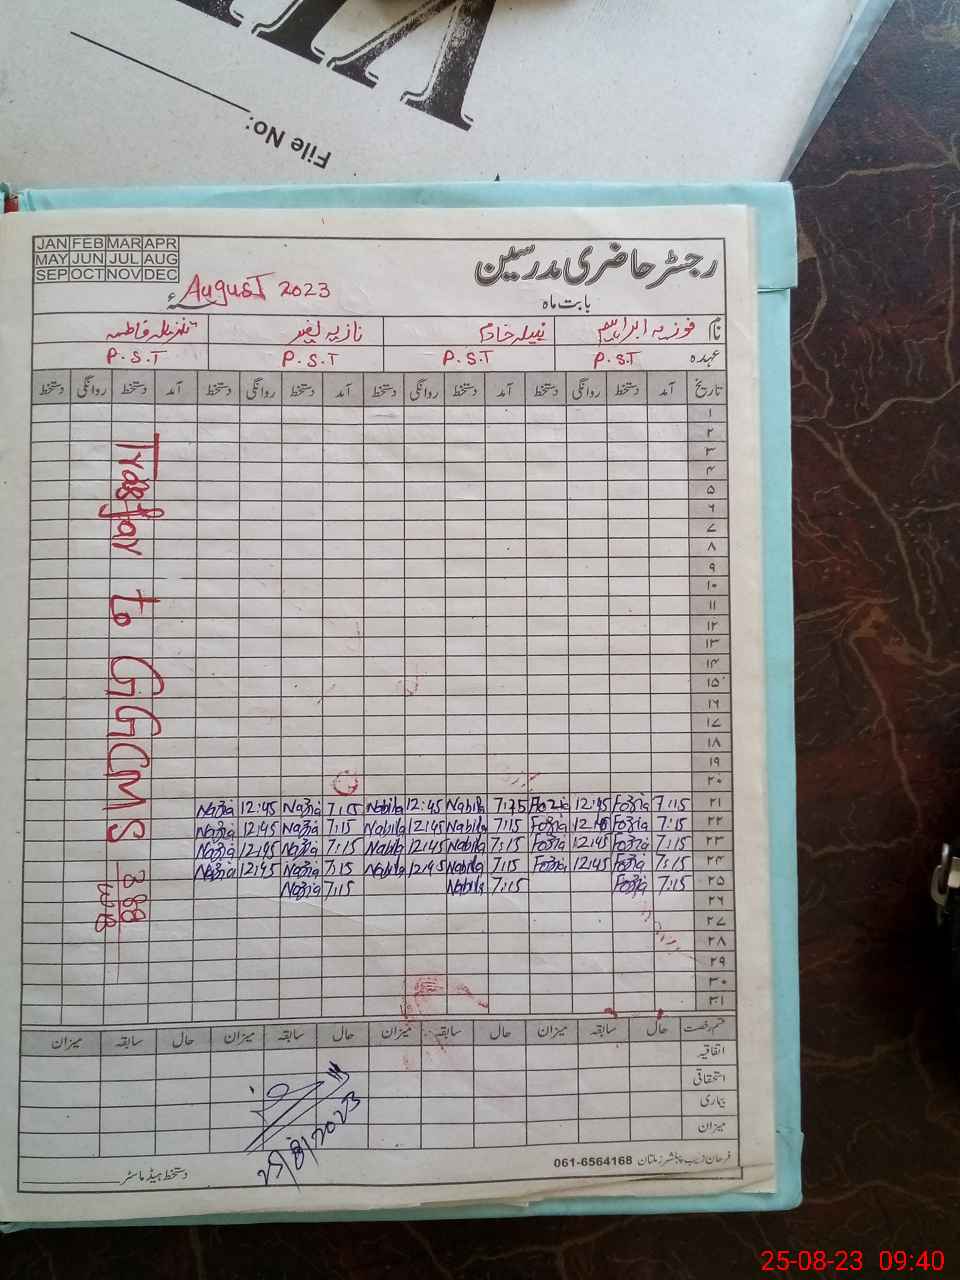 File No:
JAN FEB MAR APR
MAY JUN JUL AUG
SEP OCT NOV DEC
رجسٹر حاضری مدرسین
بابت ماہ August 2023 ء
نام فوزیہ ابراہیم نبیلہ خادم نازیہ فاطمہ
عہدہ P.S.T P.S.T P.S.T P.S.T
تاریخ آمد دستخط روانگی دستخط آمد دستخط روانگی دستخط آمد دستخط روانگی دستخط آمد دستخط روانگی دستخط
۱
۲
۳
۴
۵
۶
۷
۸
۹
۱۰
۱۱
۱۲
۱۳
۱۴
۱۵
۱۶
۱۷
۱۸
۱۹
۲۰
۲۱ 7:15 Fozia 12:45 Fozia 7:15 Nabila 12:45 Nabila 7:15 Nazia 12:45 Nazia
۲۲ 7:15 Fozia 12:45 Fozia 7:15 Nabila 12:45 Nabila 7:15 Nazia 12:45 Nazia
۲۳ 7:15 Fozia 12:45 Fozia 7:15 Nabila 12:45 Nabila 7:15 Nazia 12:45 Nazia
۲۴ 7:15 Fozia 12:45 Fozia 7:15 Nabila 12:45 Nabila 7:15 Nazia 12:45 Nazia
۲۵ 7:15 Fozia 7:15 Nabila 7:15 Nazia
۲۶
۲۷
۲۸
۲۹
۳۰
۳۱
Trasfar to GGCMS 388
WB
قسم رخصت حال سابقہ میزان حال سابقہ میزان حال سابقہ میزان حال سابقہ میزان
اتفاقیہ
استحقاقی
بیماری
میزان
25/8/2023
دستخط ہیڈ ماسٹر
فرحان زیب پبلشرز ملتان 061-6564168
25-08-23 09:40